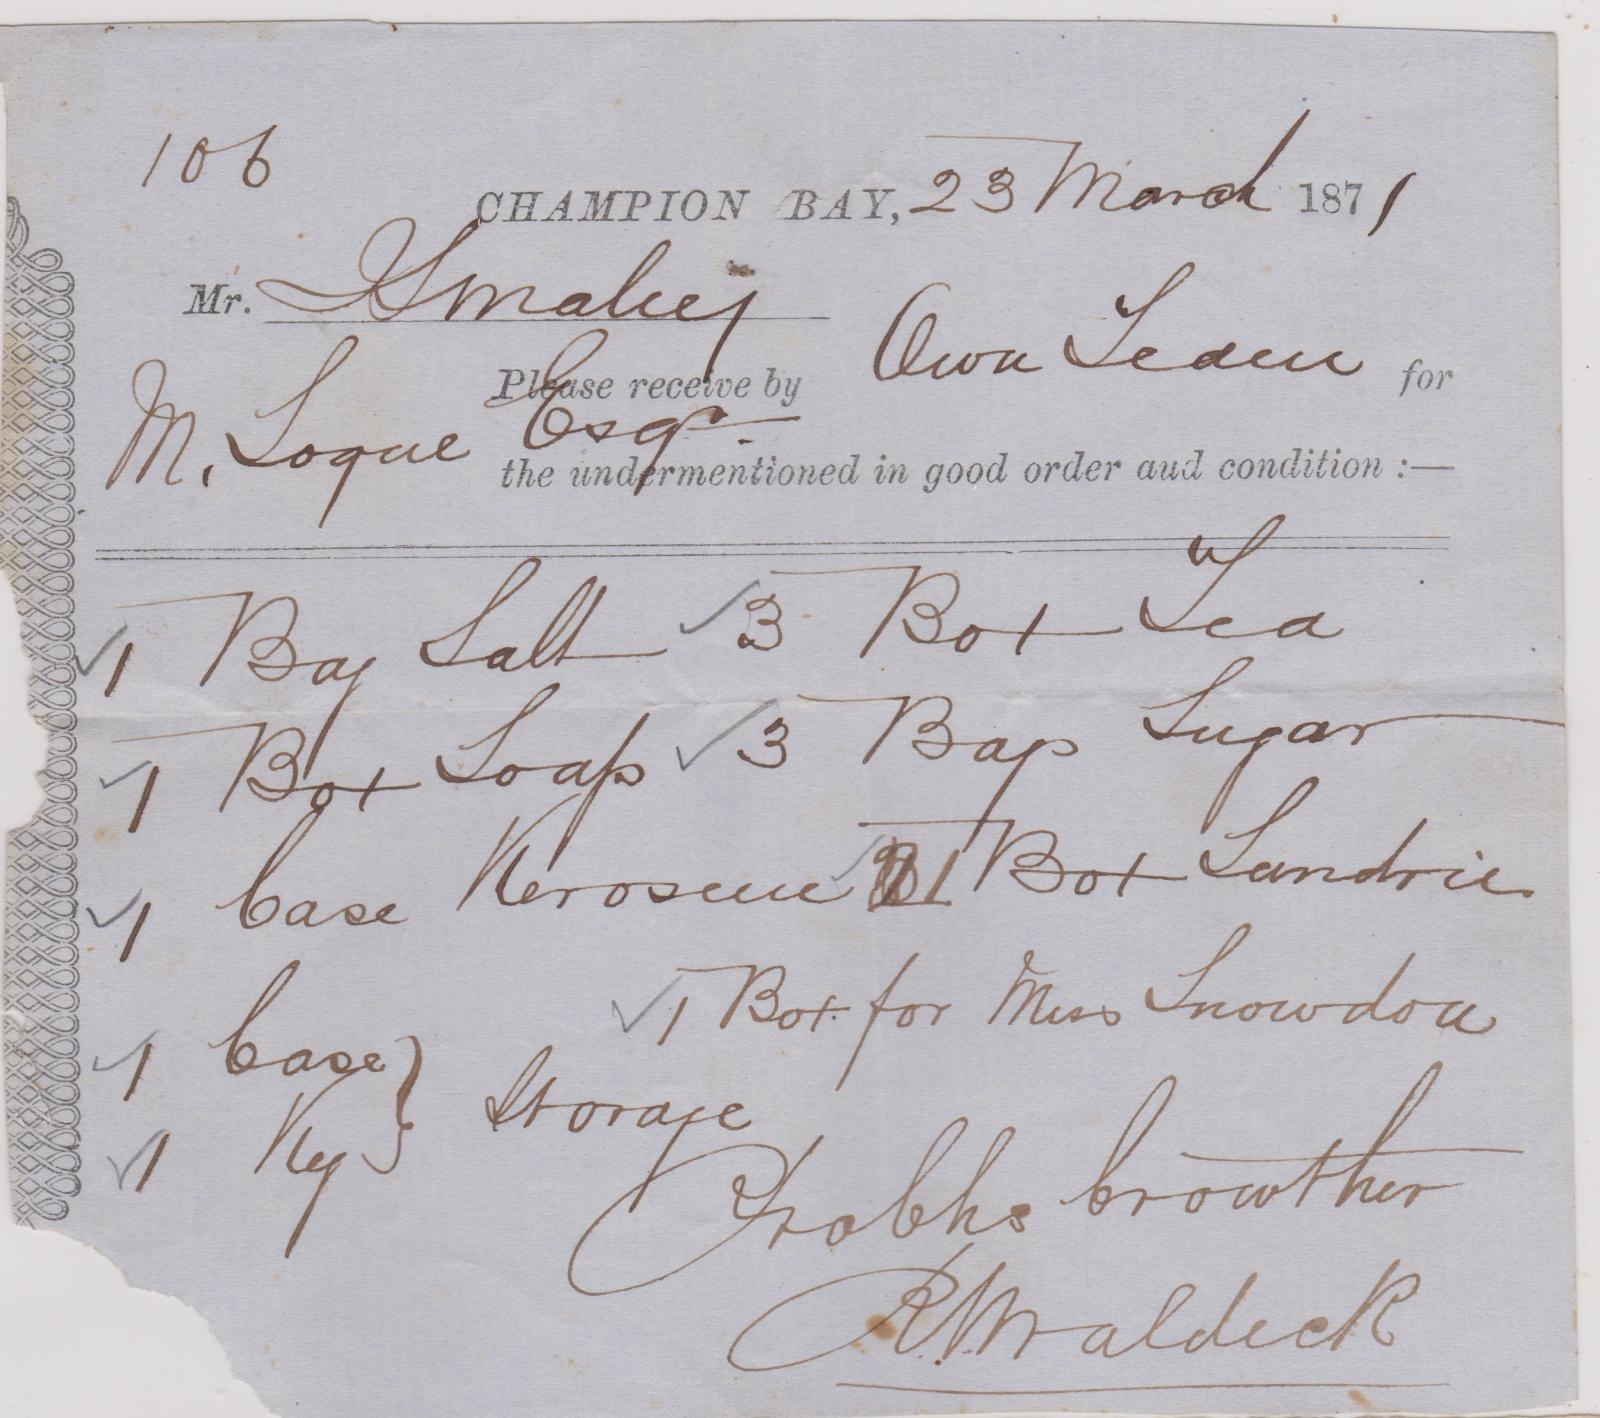 106
CHAMPION BAY, 23 March 1871
Mr. Smaley
Please receive by Own Team for
M. Logue Esqr.
the undermentioned in good order aud condition :—
1 Bag Salt 3 Box Tea
1 Box Soap 3 Bags Sugar
1 Case Kerosene 1 Box Sundries
1 Box for Miss Snowdon
1 Case
Storage
1 Keg
Crowther
Waldeck